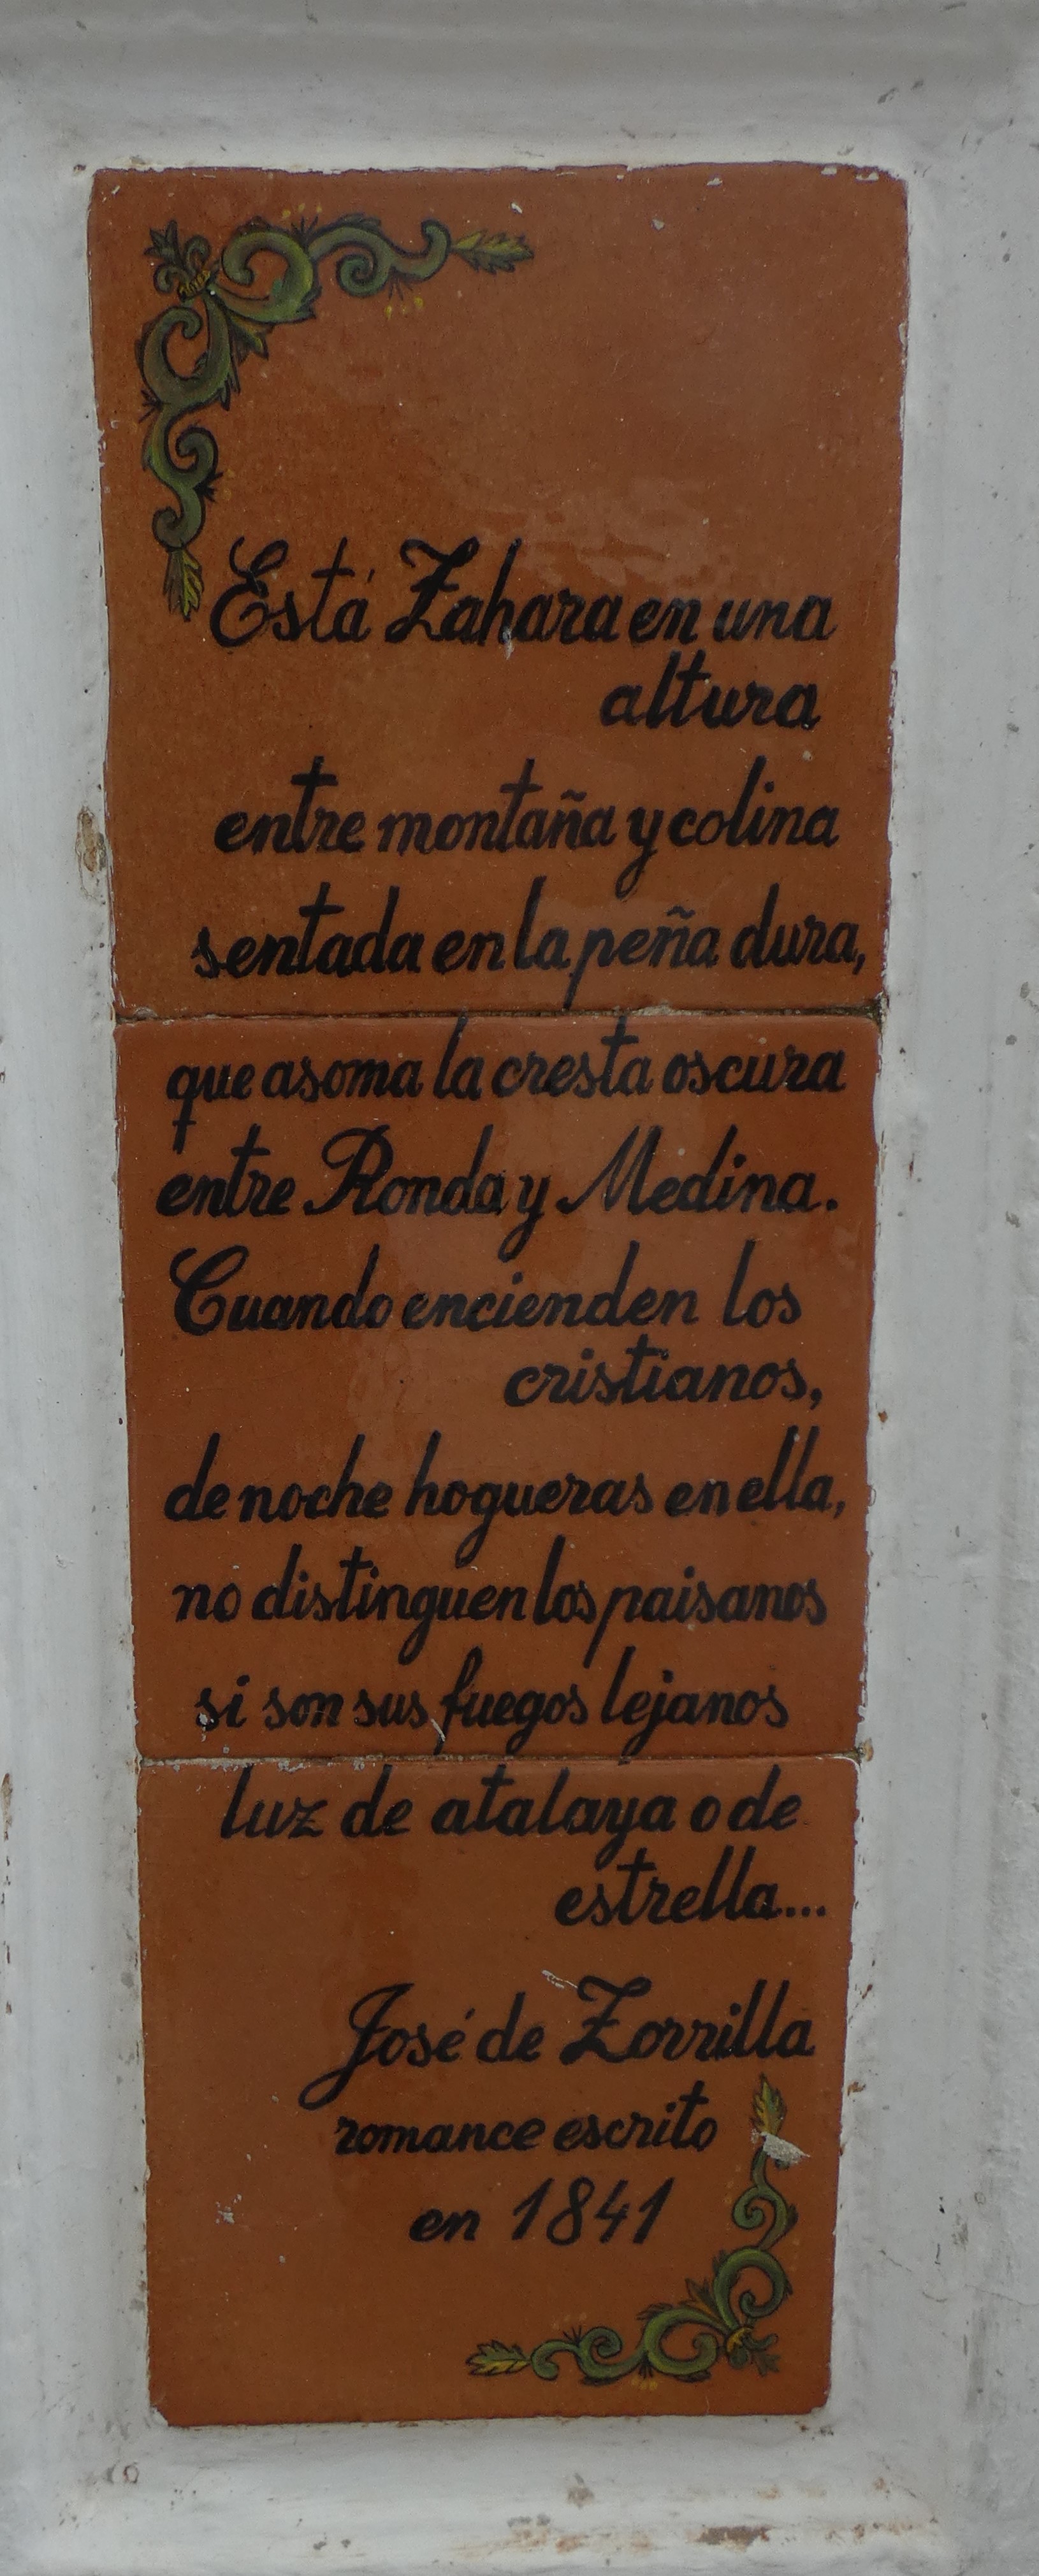 Está Zahara en una
altura
entre montaña y colina
sentada en la peña dura,
que asoma la cresta oscura
entre Ronda y Medina.
Cuando encienden los
cristianos,
de noche hogueras en ella,
no distinguen los paisanos
si son sus fuegos lejanos
luz de atalaya o de
estrella...
José de Zorrilla
romance escrito
en 1841